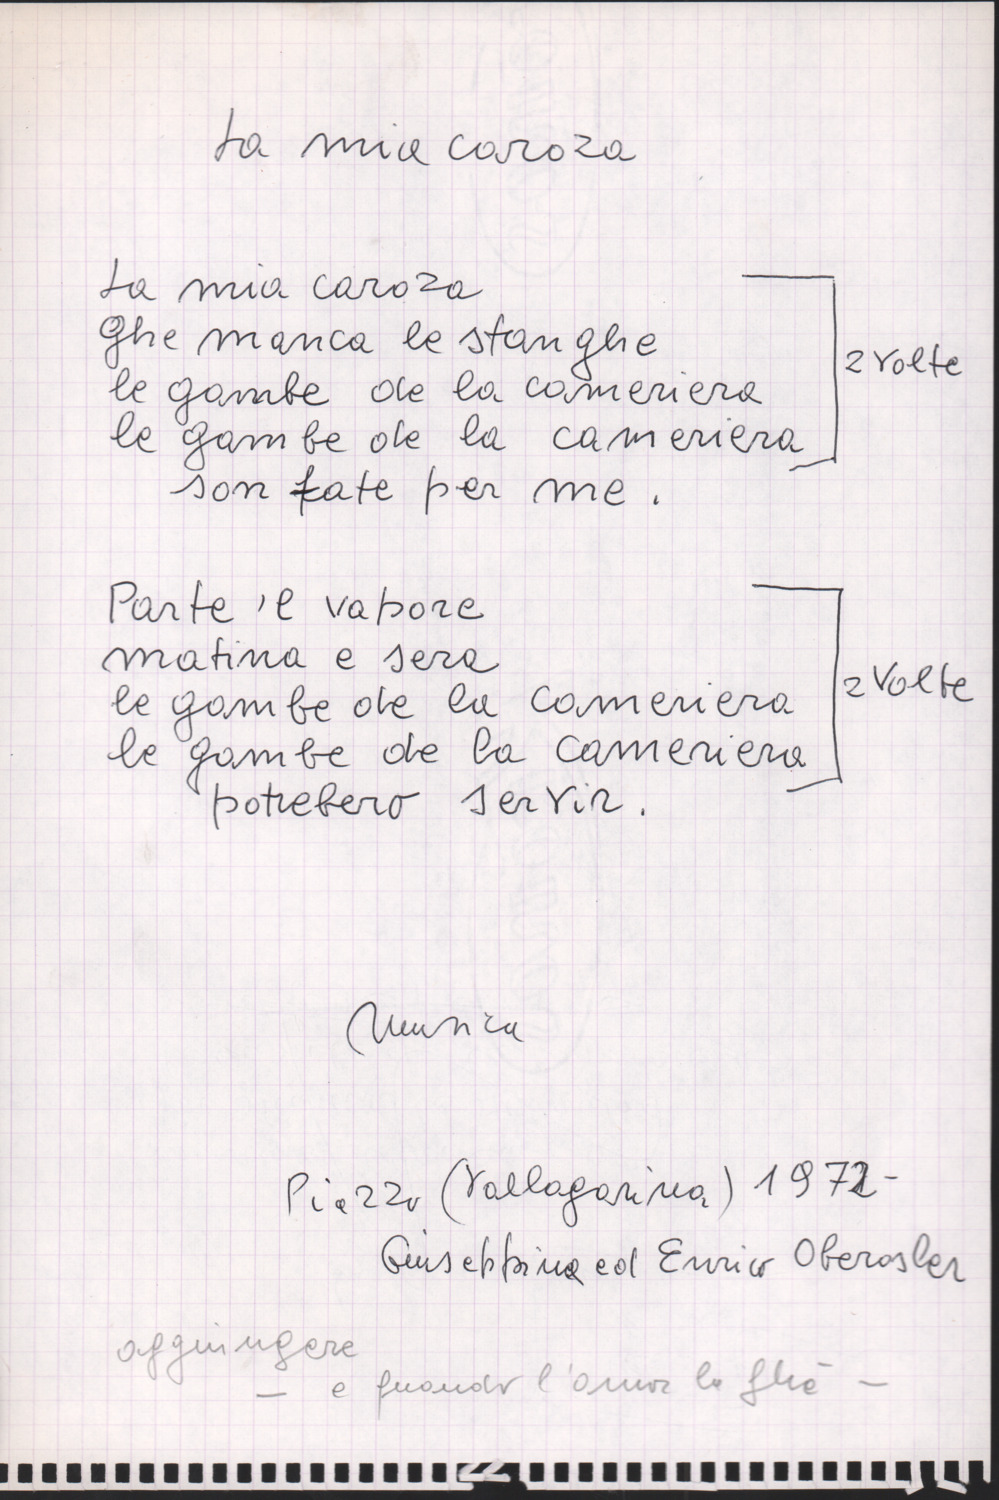 La mia caroza
La mia caroza
Ghe manca le stanghe
le gambe de la cameriera
2 volte
le gambe de la cameriera
son fate per me.
Parte 'l vapore
matina e sera
le gambe de la cameriera
2 Volte
le gambe de la cameriera
potrebero servir.
Musica
Piazzo (Vallagarina) 1972-
Giuseppina ed Enrico Oberosler
aggiungere
- e quando l'amor la ghè -